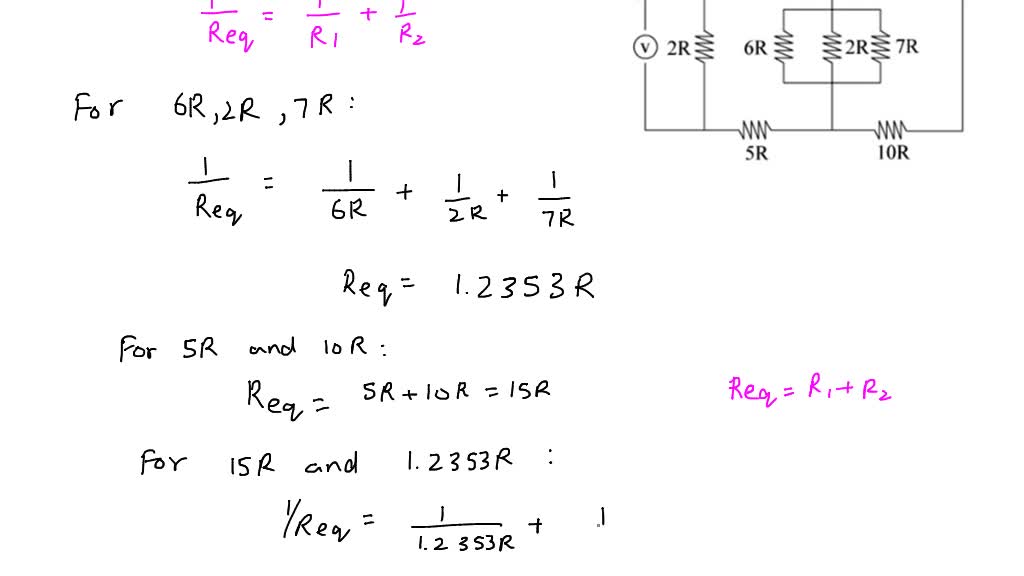 1/Req = 1/R1 + 1/R2
V 2R 6R 2R 7R
For 6R, 2R, 7R :
5R 10R
1/Req = 1/6R + 1/2R + 1/7R
Req = 1.2353R
For 5R and 10R :
Req = 5R + 10R = 15R
Req = R1 + R2
For 15R and 1.2353R :
1/Req = 1/1.2353R + 1